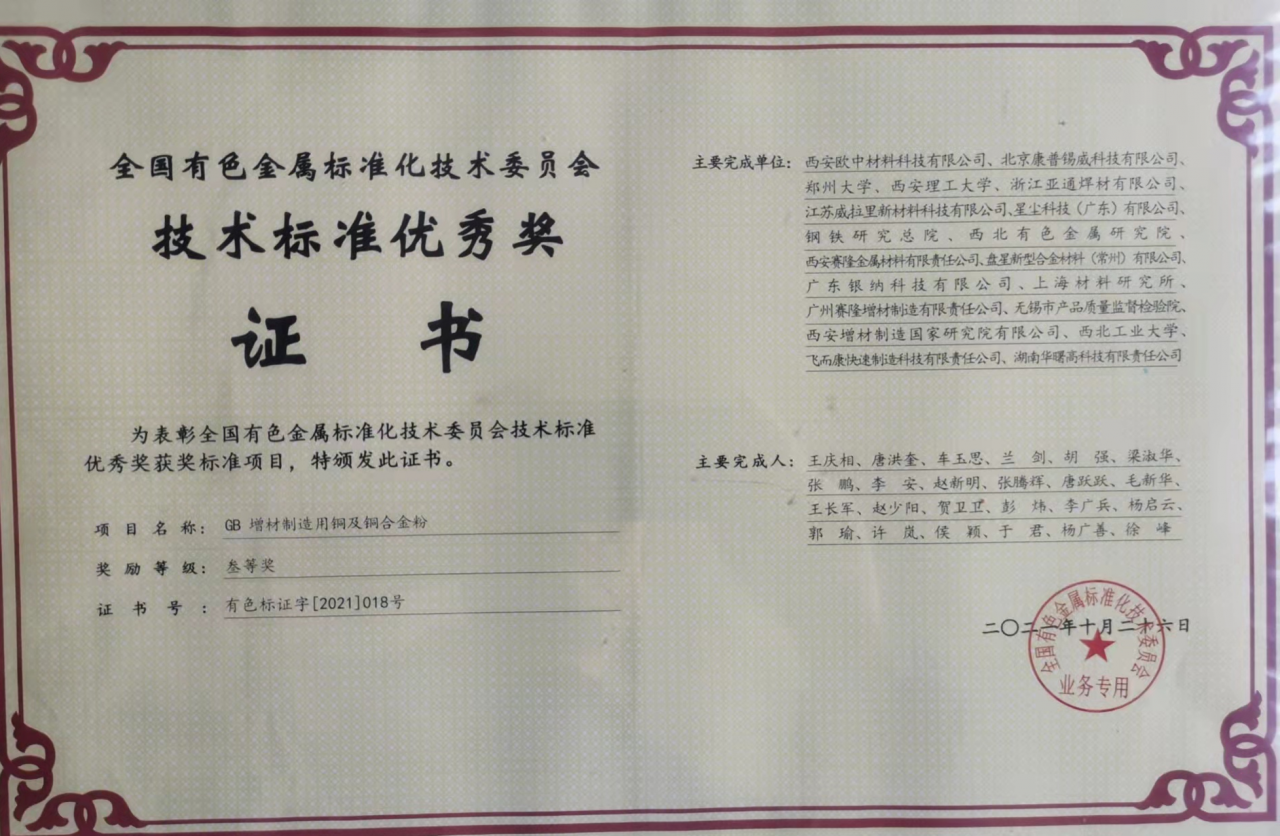 全国有色金属标准化技术委员会
技术标准优秀奖
证 书
为表彰全国有色金属标准化技术委员会技术标准
优秀奖获奖标准项目，特颁发此证书。
项目名称：GB 增材制造用铜及铜合金粉
奖励等级：叁等奖
证书号：有色标证字[2021]018号
主要完成单位：西安欧中材料科技有限公司、北京康普锡威科技有限公司、
郑州大学、西安理工大学、浙江亚通焊材有限公司、
江苏威拉里新材料科技有限公司、星尘科技（广东）有限公司、
钢铁研究总院、西北有色金属研究院、
西安赛隆金属材料有限责任公司、盘星新型合金材料（常州）有限公司、
广东银纳科技有限公司、上海材料研究所、
广州赛隆增材制造有限责任公司、无锡市产品质量监督检验院、
西安增材制造国家研究院有限公司、西北工业大学、
飞而康快速制造科技有限责任公司、湖南华曙高科技有限责任公司
主要完成人：王庆相、唐洪奎、车玉思、兰 剑、胡 强、梁淑华、
张 鹏、李 安、赵新明、张腾辉、唐跃跃、毛新华、
王长军、赵少阳、贺卫卫、彭 炜、李广兵、杨启云、
郭 瑜、许 岚、侯 颖、于 君、杨广善、徐 峰
二〇二一年十月二十六日
全国有色金属标准化技术委员会
业务专用